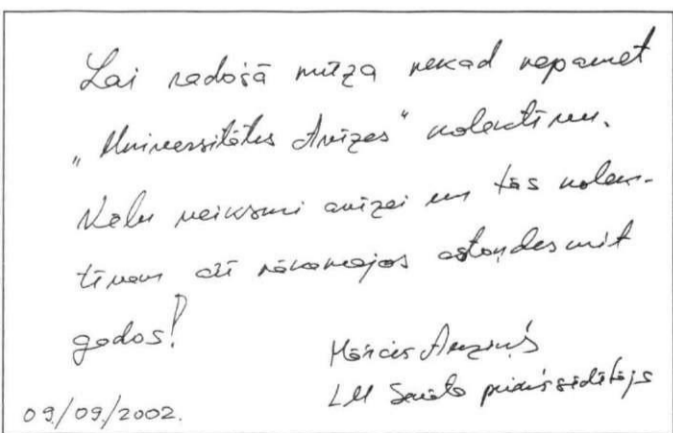 Lai radošā mūza nekad nepamet
„Universitātes Avīzes“ kolektīvu.
Vēlu veiksmi avīzei un tās kolek-
tīvam arī nākamajos astoņdesmit
godos!
Mārcis Auziņš
LU Senāta priekšsēdētājs
09/09/2002.